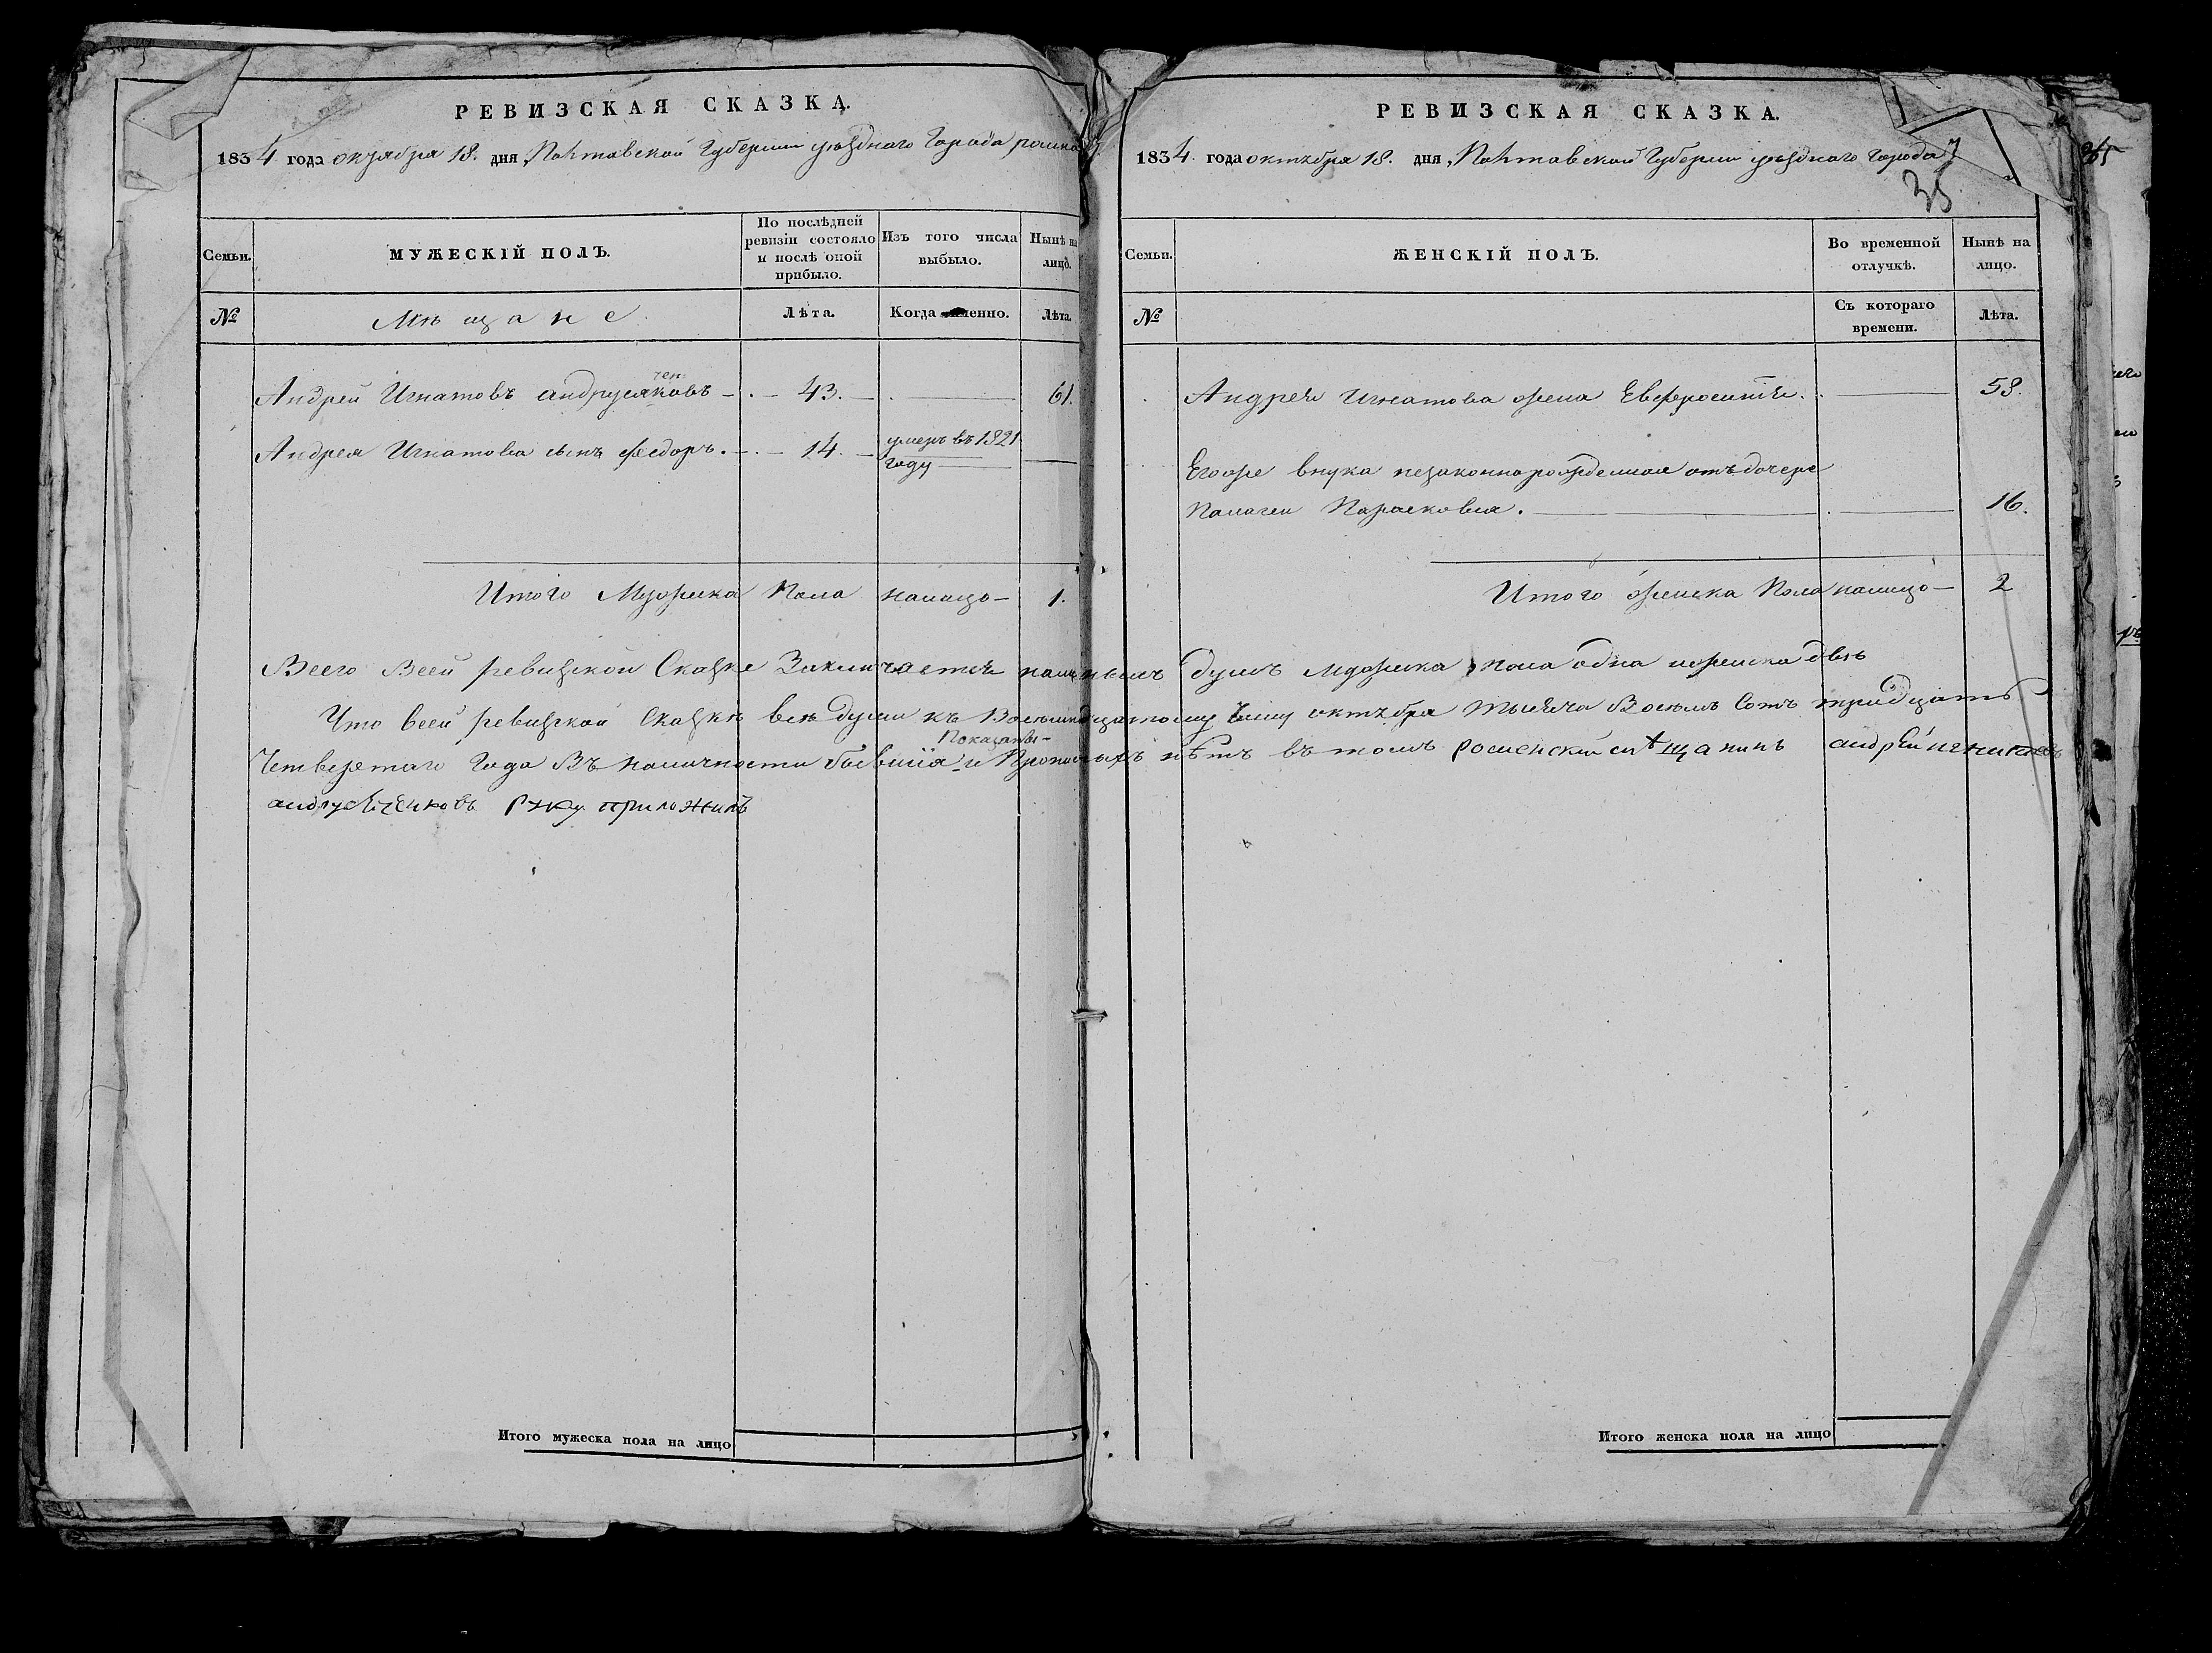 РЕВИЗСКАЯ СКАЗКА.
1834 года октября 18. дня, Полтавской Губернии уѣзднаго Города
Семьи.
МУЖЕСКІЙ ПОЛЪ.
По послѣдней ревизіи состояло и послѣ оной прибыло.
Изъ того числа выбыло.
Нынѣ на лицо.
№
Мѣщане
Лѣта.
Когда именно.
Лѣта.
чен
Андрей Игнатовъ андрусяковъ - 43. 61.
Андрея Игнатова сынъ федоръ. - 14. умеръ въ 1821
году
Итого Мужеска Пола налицо - 1.
РЕВИЗСКАЯ СКАЗКА.
1834 года октября 18. дня, Полтавской Губернии уѣзднаго города
35
Семьи.
ЖЕНСКІЙ ПОЛЪ.
Во временной отлучкѣ.
Нынѣ на лицо.
№
Съ котораго времени.
Лѣта.
Андрея Игнатова жена Евфросинія. 58.
Егоже внука незаконнорожденная отъ дочери
Палагеи Парасковия. 16.
Итого женска Пола налицо - 2
Всего Всей ревизской Сказке Заключается наличныхъ душъ мужеска пола одна и женска двѣ
Что всей ревизской Сказкѣ всѣ души къ Восемнадцатому числу октября тысяча Восемъ Сотъ тридцать
Показаны
Четвертаго Года Въ наличности бывшія и Прописныхъ нѣтъ въ томъ роменский мѣщанинъ андрей игнатовъ
андрусяченковъ руку приложилъ
Итого мужеска пола на лицо
Итого женска пола на лицо